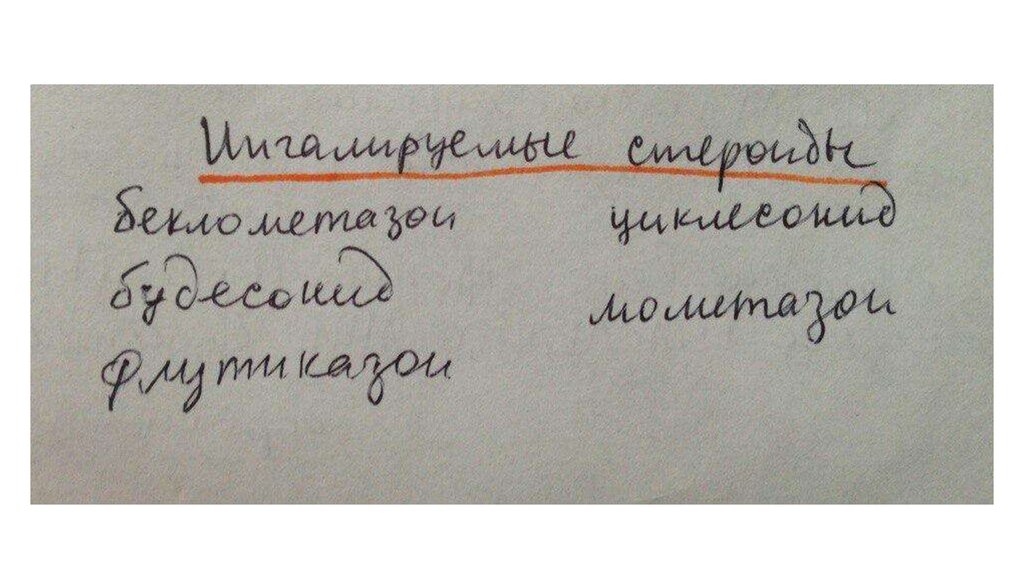 Ингалируемые стероиды
беклометазон
будесонид
флутиказон
циклесонид
мометазон